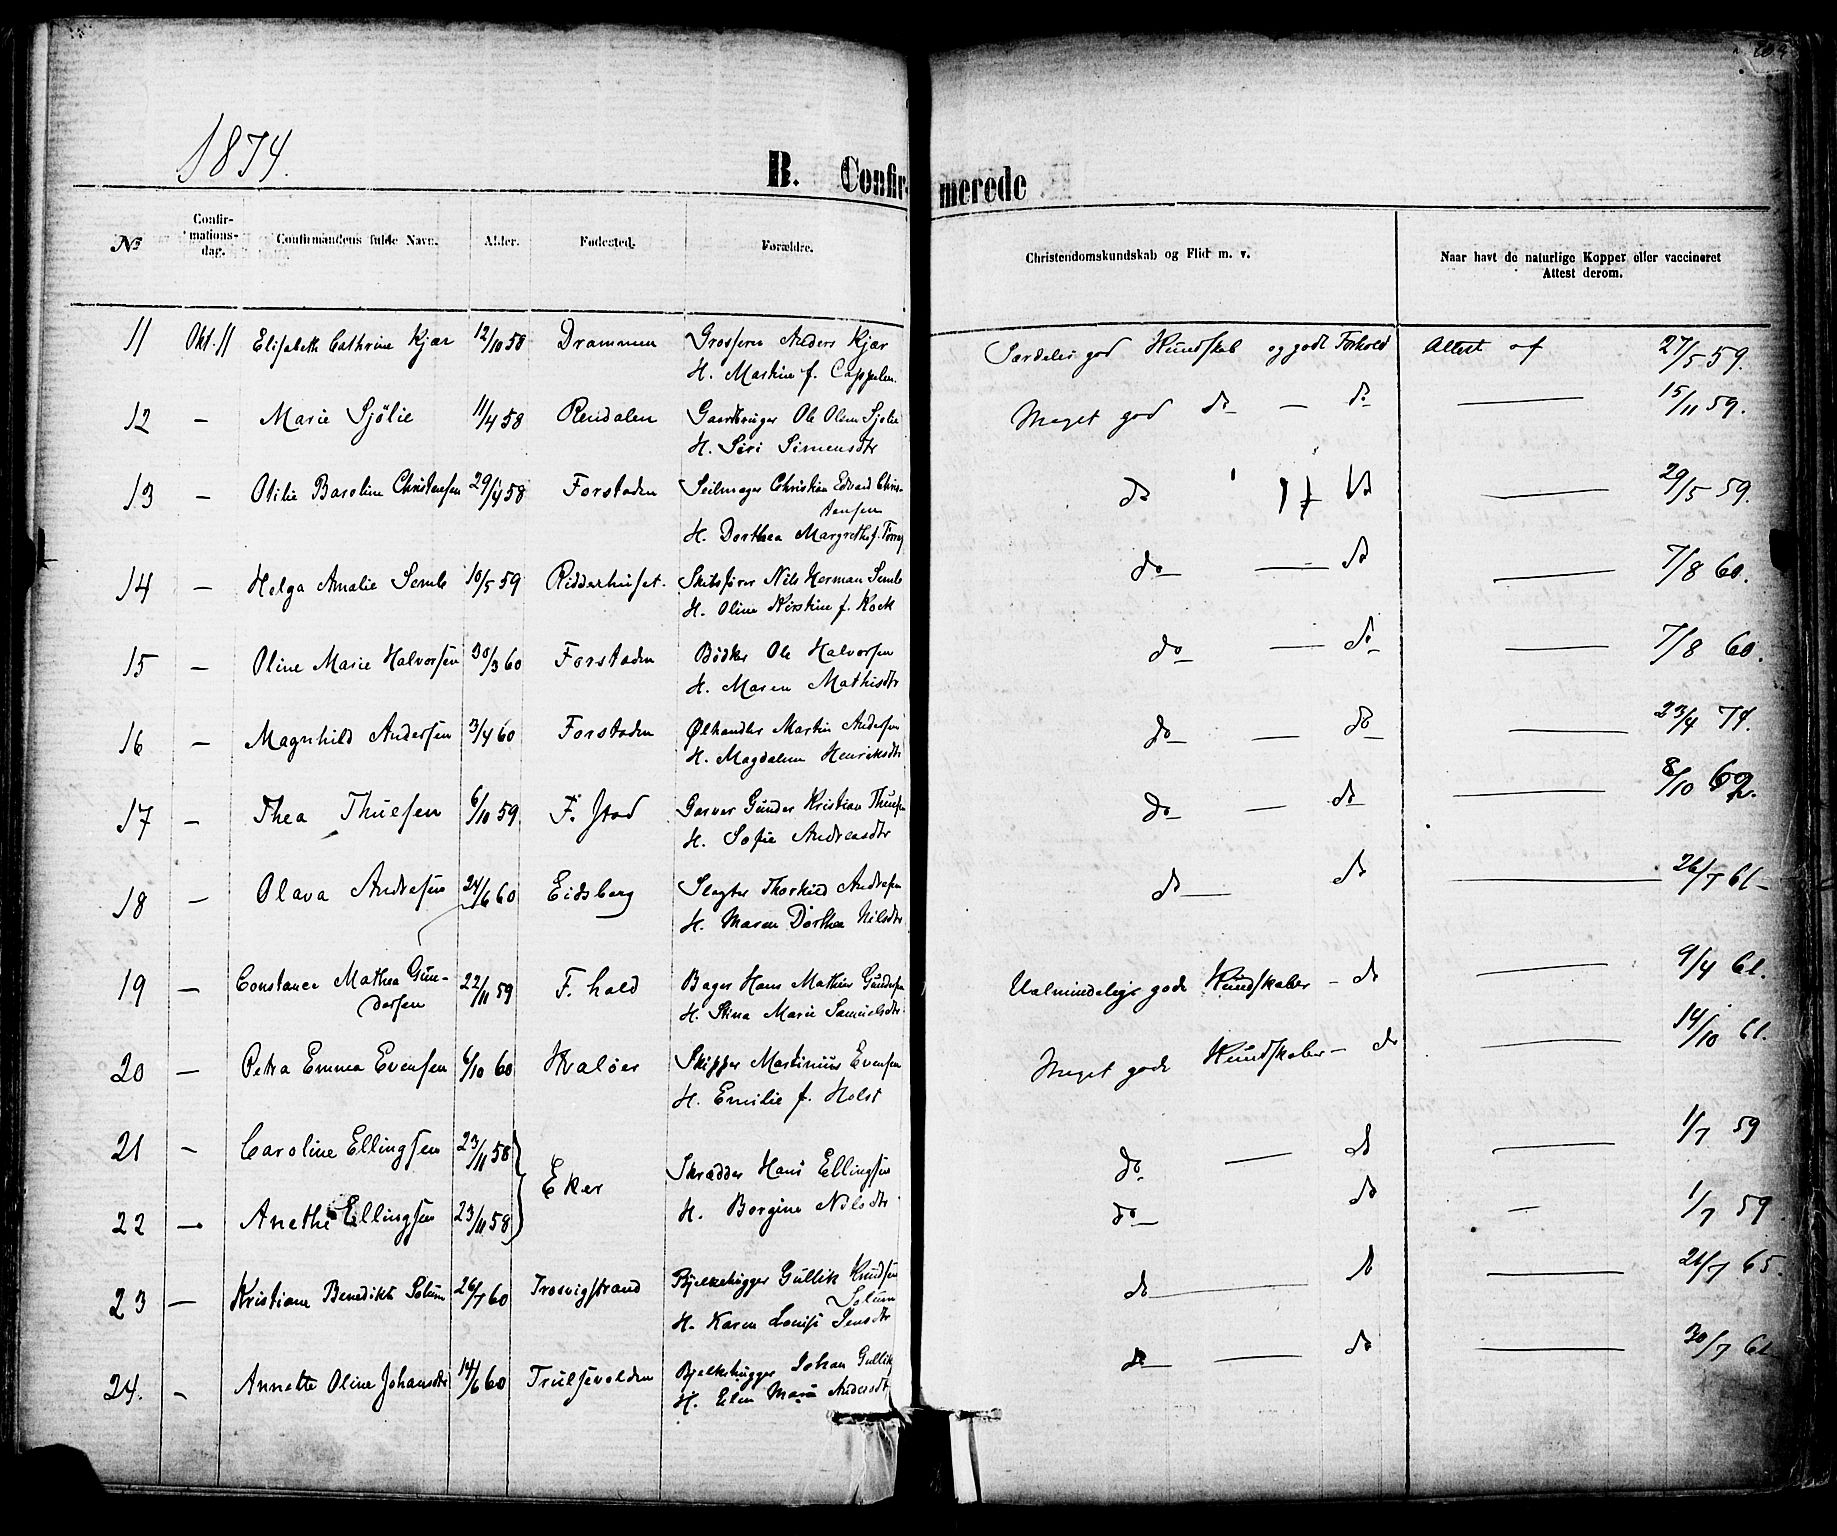 1874.
B. Confirmerede
No
Confirmationsdag.
Confirmandens fulde Navn.
Alder.
Fødested.
Forældre.
Christendomskundskab og Flid m. v.
Naar havt de naturlige Kopper eller vaccineret
Attest derom.
11 Okt. 11 Elisabeth Cathrine Kjær 12/10 58 Drammen Grosserer Anders Kjær Særdeles god Kundskab og godt Forhold Attest af 27/5 59.
H. Martine f. Cappelen.
12 — Marie Sjölie 11/4 58 Rendalen Gaardbruger Ole Olsen Sjölie Meget god do — do — 15/11 59.
H. Siri Simensdtr
13 — Otilie Baroline Christensen 29/4 58 Forstaden Seilmager Christian Edvard Chris- do do — 29/5 59.
tensen
H. Dorthea Margrethe f.
14 — Helga Amalie Semb 10/5 59 Ridderhuset. Nils Herman Semb do — do — 7/8 60.
H. Oline Kirstine f. Kock
15 — Oline Marie Halvorsen 30/3 60 Forstaden Bödker Ole Halvorsen do — do — 7/8 60.
H. Maren Mathisdtr
16 — Magnhild Andersen 3/4 60 Forstaden Ølhandler Martin Andersen do — do — 23/4 74.
H. Magdalene Henriksdtr
17 — Thea Thuesen 6/10 59. F. Stad Garver Gunder Kristian Thuesen do — do — 8/10 62.
H. Sofie Andreasdtr
18 — Olava Andresen 24/6 60 Eidsberg Slagter Thorkild Andresen do — do — 26/7 61 —
H. Maren Dorthea Nilsdtr
19 — Constance Mathea Gun- 22/11 59 F. hald Bager Hans Mathias Gundersen Ualmindelig gode Kundskaber — do — 9/4 61.
dersen H. Stina Marie Samuelsdtr.
20 — Petra Emma Evensen 6/10 60 Hvaløer Skipper Martinius Evensen Meget gode Kundskaber — do — 14/10 61.
H. Emilie f. Holst
21 — Caroline Ellingsen 23/11 58 Eker Skrædder Hans Ellingsen do — do — 1/7 59
22 — Anethe Ellingsen 23/11 58 H. Borgine Nilsdtr do — do — 1/7 59.
23 — Kristiane Benedikte Solum 26/7 60 Trosvigstrand Bjelkehugger Gullik Knudsen do — do — 26/7 65.
Solum
H. Karen Louise Jensdtr
24. — Annette Oline Johansdtr 14/6 60 Trulsevolden Bjelkehugger Johan Gullik do — do — 30/7 61
H. Elen Marie Andersdtr